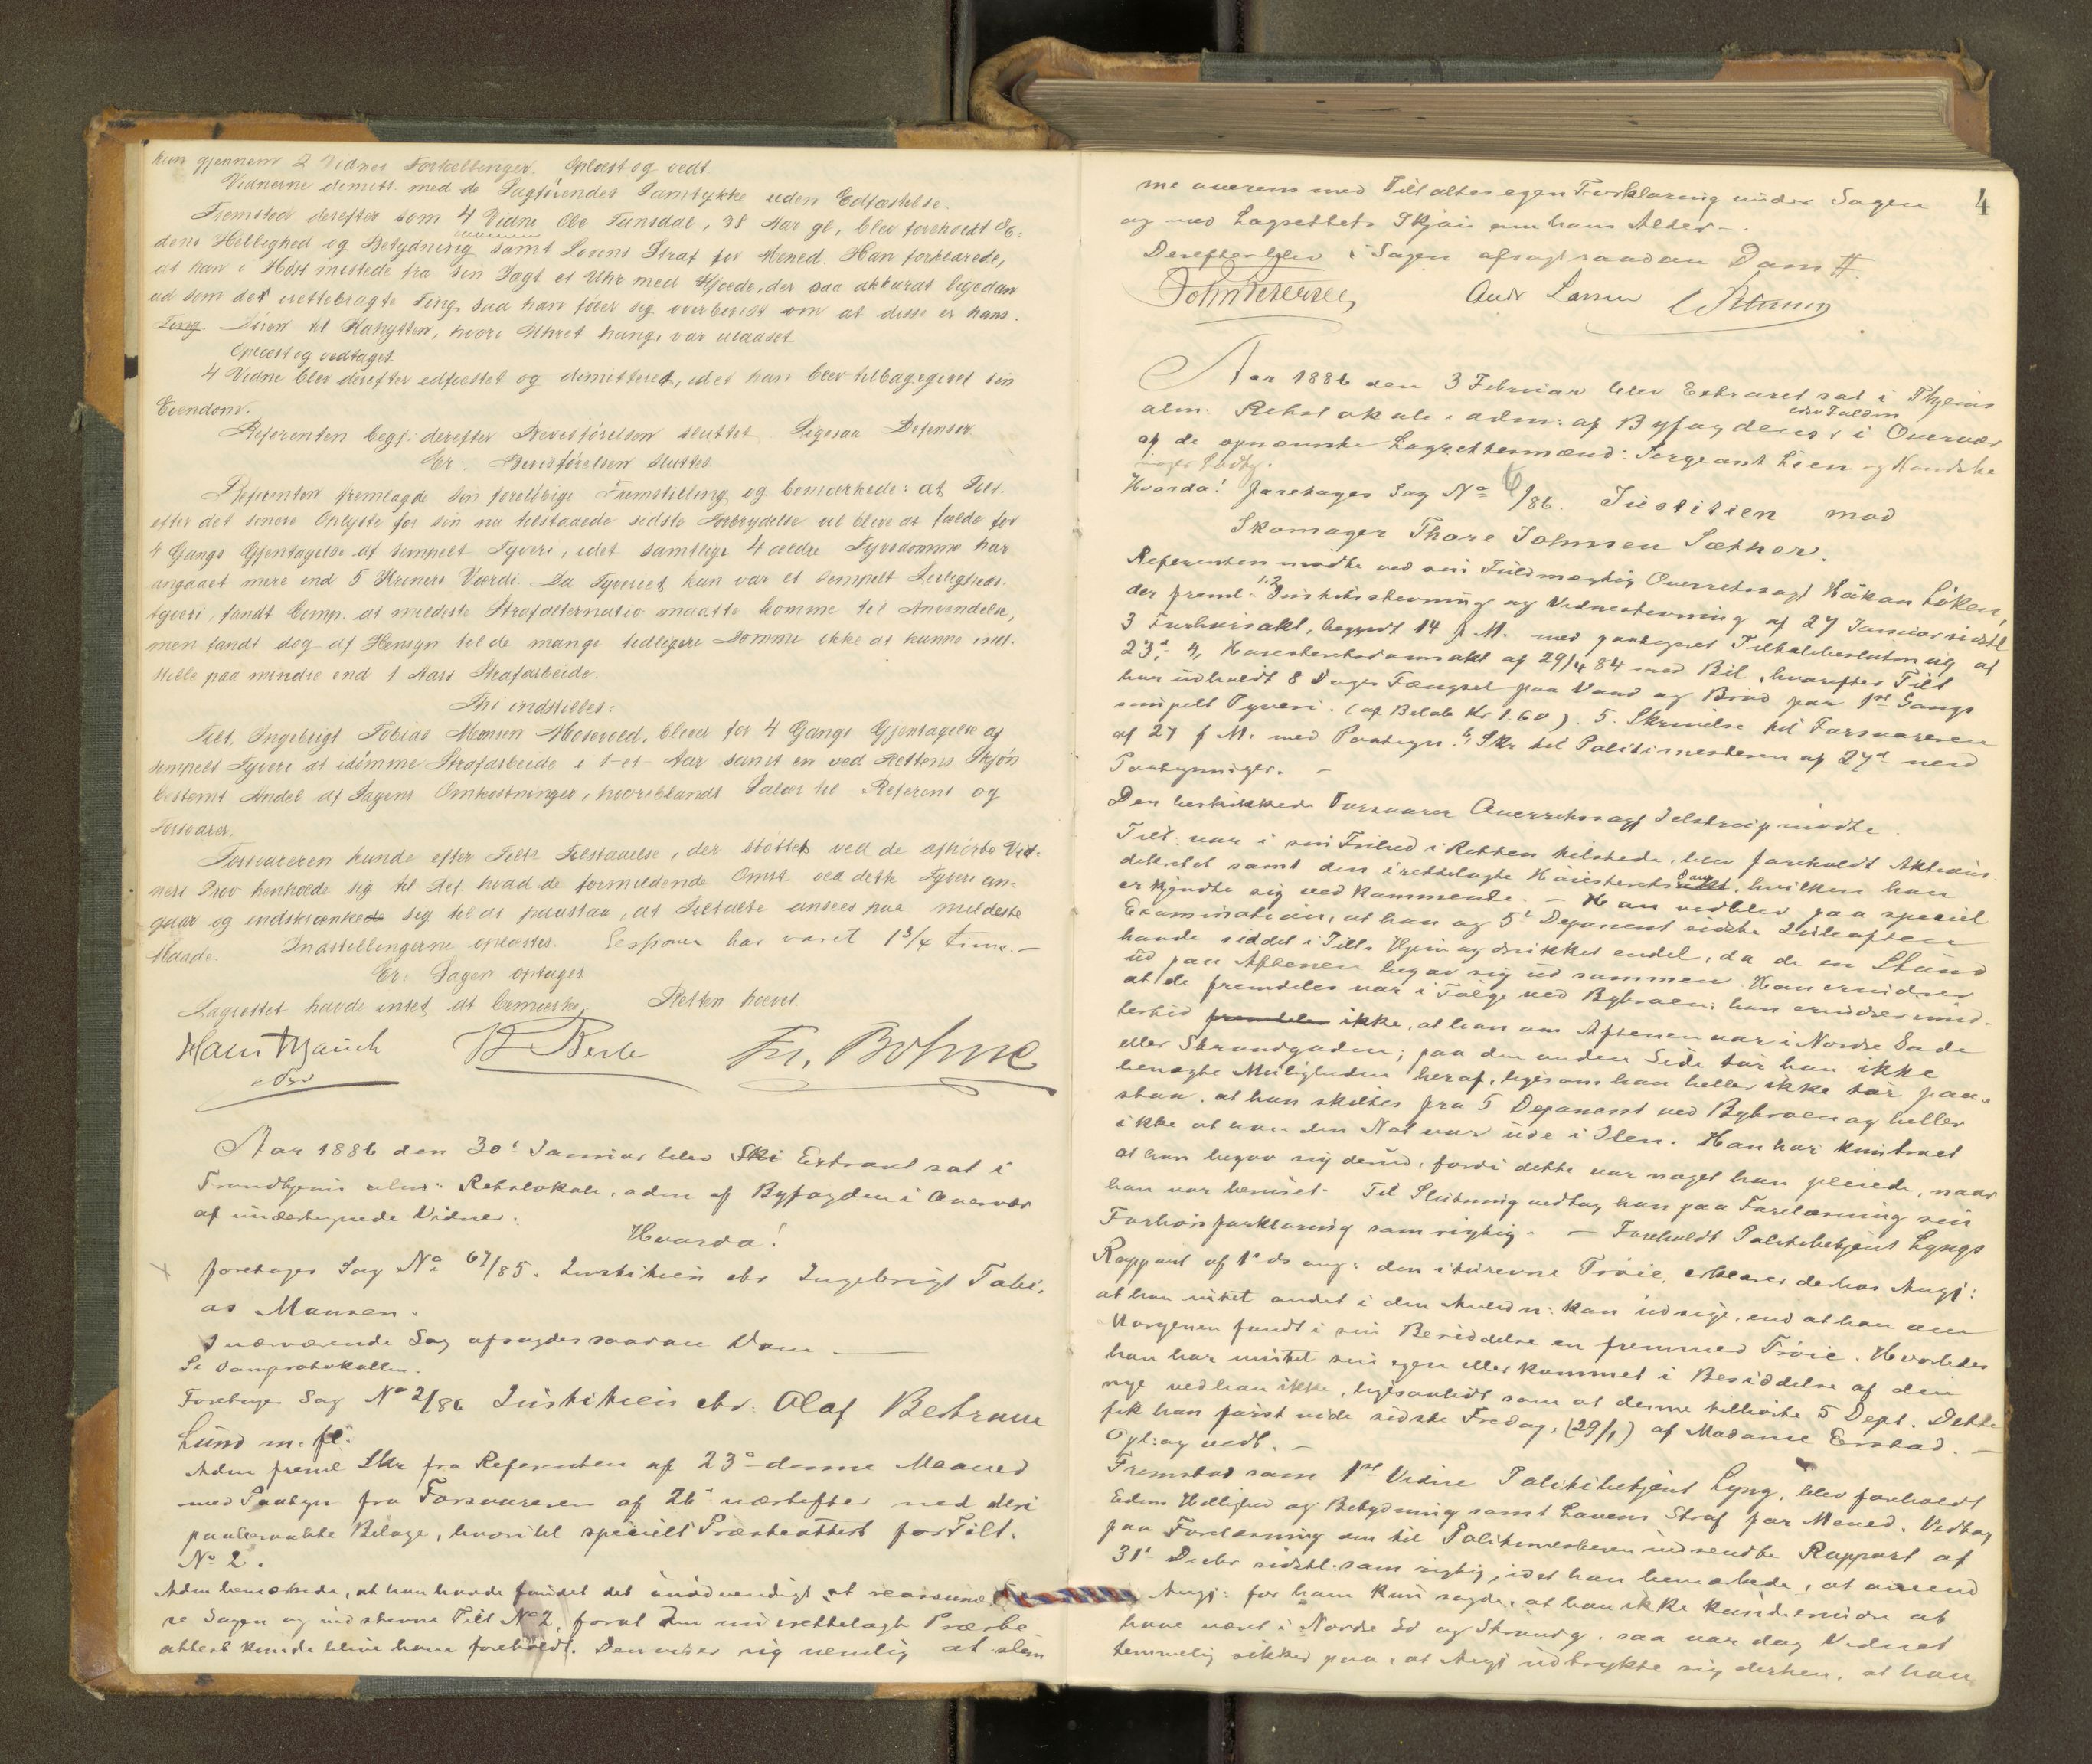 kun gjennem 2 Vidners Fortællinger. Oplæst og vedt.
Vidnerne demitt. med de Sagførendes Samtykke uden Edfæstelse.
Fremstod derefter som 4 Vidne Ole Tansdal, 38 Aar gl, blev foreholdt E=
dens Hellighed og Betydning samt Lovens Straf for Mened. Han forklarede,
at han i Høst mistede fra sin Jagt et Uhr med Kjæde, der saa akkurat ligedan
ud som det irettebragte Ting, saa han føler sig overbevist om at disse er hans.
Ting. Døren til Kahytten, hvori Uhret hang, var ulaaset.
Oplæst og vedtaget.
4 Vidne blev derefter edfæstet og demitteret, idet han blev tilbagegivet sin
Eiendom.
Referenten begj. derefter Bevisførelsen sluttet. Ligesaa Defensor
Er. Bevisførelsen sluttes.
Referenten fremlagde sin foreløbige Fremstilling og bemærkede: at Tilt.
efter det senere Oplyste for sin nu tilstaaede sidste Forbrydelse vil blive at fælde for
4 Gangs Gjentagelse af simpelt Tyveri, idet samtlige 4 ældre Tyvsdomme har
angaaet mere end 5 Kroners Værdi. Da Tyveriet kun var et simpelt Leiligheds-
tyveri, fandt Comp. at mildeste Strafalternativ maatte komme til Anvendelse,
men fandt dog af Hensyn til de mange tidligere Domme ikke at kunne ind-
stille paa mindre end 1 Aars Strafarbeide.
Thi indstilles:
Tilt. Ingebrigt Tobias Monsen Mosevold, bliver for 4 Gangs Gjentagelse af
simpelt Tyveri at idømme Strafarbeide i 1-et Aar samt en ved Rettens Skjøn
bestemt Andel af Sagens Omkostninger, hvoriblandt Salær til Referent og
Forsvarer.
Forsvareren kunde efter Tilts Tilstaaelse, der støttes ved de afhørte Vid-
ners Prov henholde sig til Ref. hvad de formildende Omst. ved dette Tyveri an-
gaar og indskrænkede sig til at paastaa, at Tiltalte ansees paa mildeste
Maade. Indstillingerne oplæstes. Sessionen har varet 1 3/4 Time.-
Er: Sagen optages
Lagrettet havde intet at bemærke. Retten hævet.
Fr. Bøhme
Aar 1886 den 30t Januar blev Extraret sat i
Trondhjems alm: Retslokale, adm af Byfogden i Overvær
af undertegnede Vidner.
Hvorda!
foretages Sag No 67/85. Justitien ctr Ingebrigt Tobi,
as Monsen.
I nærværende Sag afsagdes saadan Dom —
Se Domsprotokollen.
Foretages Sag No 2/86 Justitien ctr. Olaf Behrene
Lund m. fl.
Adm freml Skr fra Referenten af 23de denne Maaned
med Paategn fra Forsvareren af 26 næstefter med deri
paaberaabte Bilage, hvoribl specielt Præsteattest for Tilt.
No 2.
Adm bemærkede, at han havde fundet det unødvendigt at reassume-
re Sagen og indstevne Tilt No 2, forat den nu irettelagte Præste-
attest kunde blive ham foreholdt. Den viser sig nemlig at stem
4
me overens med Tiltaltes egen Forklaring under Sagen
og med Lagrettets Skjøn om hans Alder -.
Derefter blev i Sagen afsagt saadan Dom #
John Petersen Andr Larsen
Aar 1886 den 3 Februar blev Extraret sat i Thjems
alm. Retslokale, adm: af Byfogdens i Overvær
af de opnævnte Lagrettesmænd: Sergeant Lien og Handske
Hvorda! foretages Sag No 6/86. Justitien mod
Skomager Thore Johnsen Sæther.
Referenten mødte ved sin Fuldmægtig Overretssagf Håkon Løken,
der freml. 1, 2 Justitsstevning og Vidnestevning af 27 Januar sidstl
3 Forhørsakt, begyndt 14 f. M. med paategnet Tiltalebeslutning af
23de, 4, Høiesteretsdomsakt af 29/4 84 med Bil, hvorefter Tilt
har udholdt 8 Dages Fængsel paa Vand og Brød for 1ste Gangs
simpelt Tyveri. (af Beløb Kr 1.60). 5. Skrivelse til Forsvareren
af 27 f M. med Paategn. 6, Skr til Politimesteren af 27d med
Paategninger. -
Den beskikkede Forsvarer Overretssagf Jelstrup mødte.
Tilt. var i sin Frihed i Retten tilstede, blev foreholdt Aktions-
dekretet samt den irettelagte Høiesterets Dom, hvilken han
erkjendte sig vedkommende. - Han vedblev paa speciel
Examination, at han og 5t Deponent sidste Juleaften
havde siddet i Tilts Hjem og drukket endel, da de en Stund
ud paa Aftenen begav sig ud sammen. Han erindrer
at de fremdeles var i Følge ved Bybroen; han erindrer imid-
lertid fremdeles ikke, at han om Aftenen var i Nordre Gade
eller Strandgaden; paa den anden Side tør han ikke
benægte Muligheden heraf, ligesom han heller ikke tør paa-
staa, at han skiltes fra 5 Deponent ved Bybroen og heller
ikke at han den Nat var ude i Ilen. Han har kun troet
at han begav sig derud, fordi dette var noget han pleiede, naar
han var beruset. Til Slutning vedtog han paa Forelæsning sin
Forhørsforklaring som rigtig. - Foreholdt Politibetjent Lyngs
Rapport af 1ste ds ang: den iturevne Trøie, erklærer derhos Angj:
at han intet andet i den Anledn: kan udsige, end at han om
Morgenen fandt i sin Besiddelse en fremmed Trøie. Hvorledes
han har mistet sin egen eller kommet i Besiddelse af den
nye ved han ikke, ligesaalidt som at denne tilhørte 5 Dept. Dette
fik han først vide sidste Fredag, (29/1) af Madame Erstad. —
Opl: og vedt. -
Fremstod som 1ste Vidne Politibetjent Lyng, blev foreholdt
Edens Hellighed og Betydning samt Lovens Straf for Mened. Vedtog
paa Forelæsning sin til Politimesteren indsendte Rapport af
31te Decbr sidstl. som rigtig, idet han bemærkede, at omend
Angj: for ham kun sagde, at han ikke kunde erindre at
have været i Nordre Gd og Strandg. saa var dog Vidnet
temmelig sikker paa, at Angj udtrykte sig derhen, at han